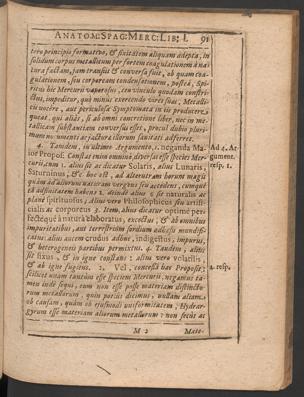 ANATOM: SPAG: MERC: LIB: I. 91
tero principio formativo, & fixitatem aliquam adepta, in
solidum corpus metallicum per fortem coagulationem à na-
tura factam, jam transiit & conversa fuit, ob quam coa-
gulationem, seu corpoream condensationem, posteà, Spi-
ritus hic Mercurii vaporosus, ceu vinculo quodam constri-
ctus, impeditur, quò minus exercendo vires suas, Metalli-
cis nocere, aut periculosa Symptomata in iis producere
queat, qui aliàs, si ab omni concretione liber, nec in me-
tallicam substantiam conversus esset, procul dubio pluri-
mum no
4. Tandem, in ultimo Argumento, 1. neganda Ma-
Ad 4. Ar-
gument.
ior Propos. Constat enim omninò, diversas esse species Mer-
resp. 1.
curii, cum 1. alius sit ac dicitur Solaris, alius Lunaris,
Saturninus, & c. hoc est, ad alterutram horum magis
quàm ad aliorum naturam vergens seu accedens, cumque
eâ adfinitatem habens 2. deinde alius & sit naturalis ac
planè spirituosus, Alius verò Philosophicus seu artifi-
cialis ac corporeus 3. Item, alius dicatur optimè per-
fectéque à natura elaboratus, excoctus, & ab omnibus
impuritatibus, aut terrestrium sordium adhæsu mundifi-
catus: alius autem crudus adhuc, indigestus, impurus,
& heterogeneis partibus permixtus. 4. Tandem, alius
sit fixus, & in igne constans: alius verò volatilis,
& ab igne fugiens. 2. Vel, concessâ hac Propos:
2. resp.
scilicet unam tantùm esse speciem Mercurii, negamus ta-
men inde sequi, eum non esse posse materiam distincto-
rum metallorum, quin potiùs dicimus, nullam aliam,
ob causam, quàm ob ejusmodi uniformitatem, Hydrar-
gyrum esse materiam aliorum metallorum: non secùs ac
M 2
Mate-